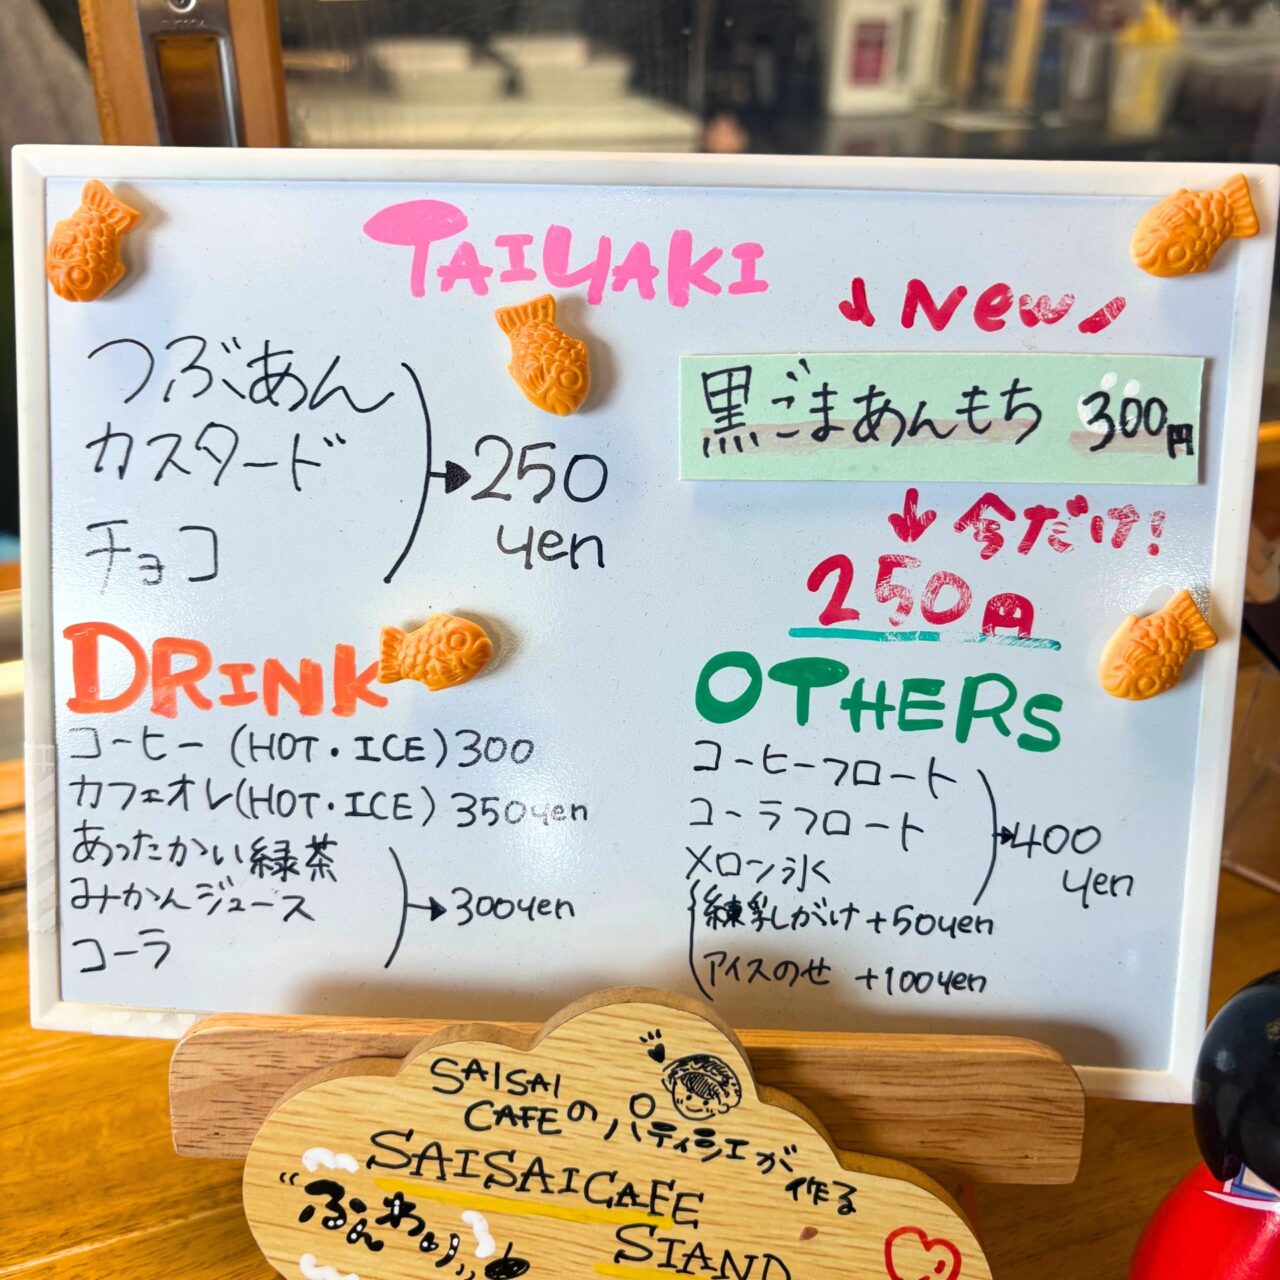 TAIYAKI
つぶあん
カスタード
チョコ
250
yen
New
黒ごまあんもち 300円
今だけ!
250円
DRINK
コーヒー (HOT・ICE) 300
カフェオレ(HOT・ICE) 350yen
あったかい緑茶
みかんジュース
コーラ
300yen
OTHERS
コーヒーフロート
コーラフロート
メロン氷
400
yen
練乳しがけ +50yen
アイスのせ +100yen
SAISAI
CAFEのパティシエが
作る
SAISAICAFE
STAND
"ふんわり"